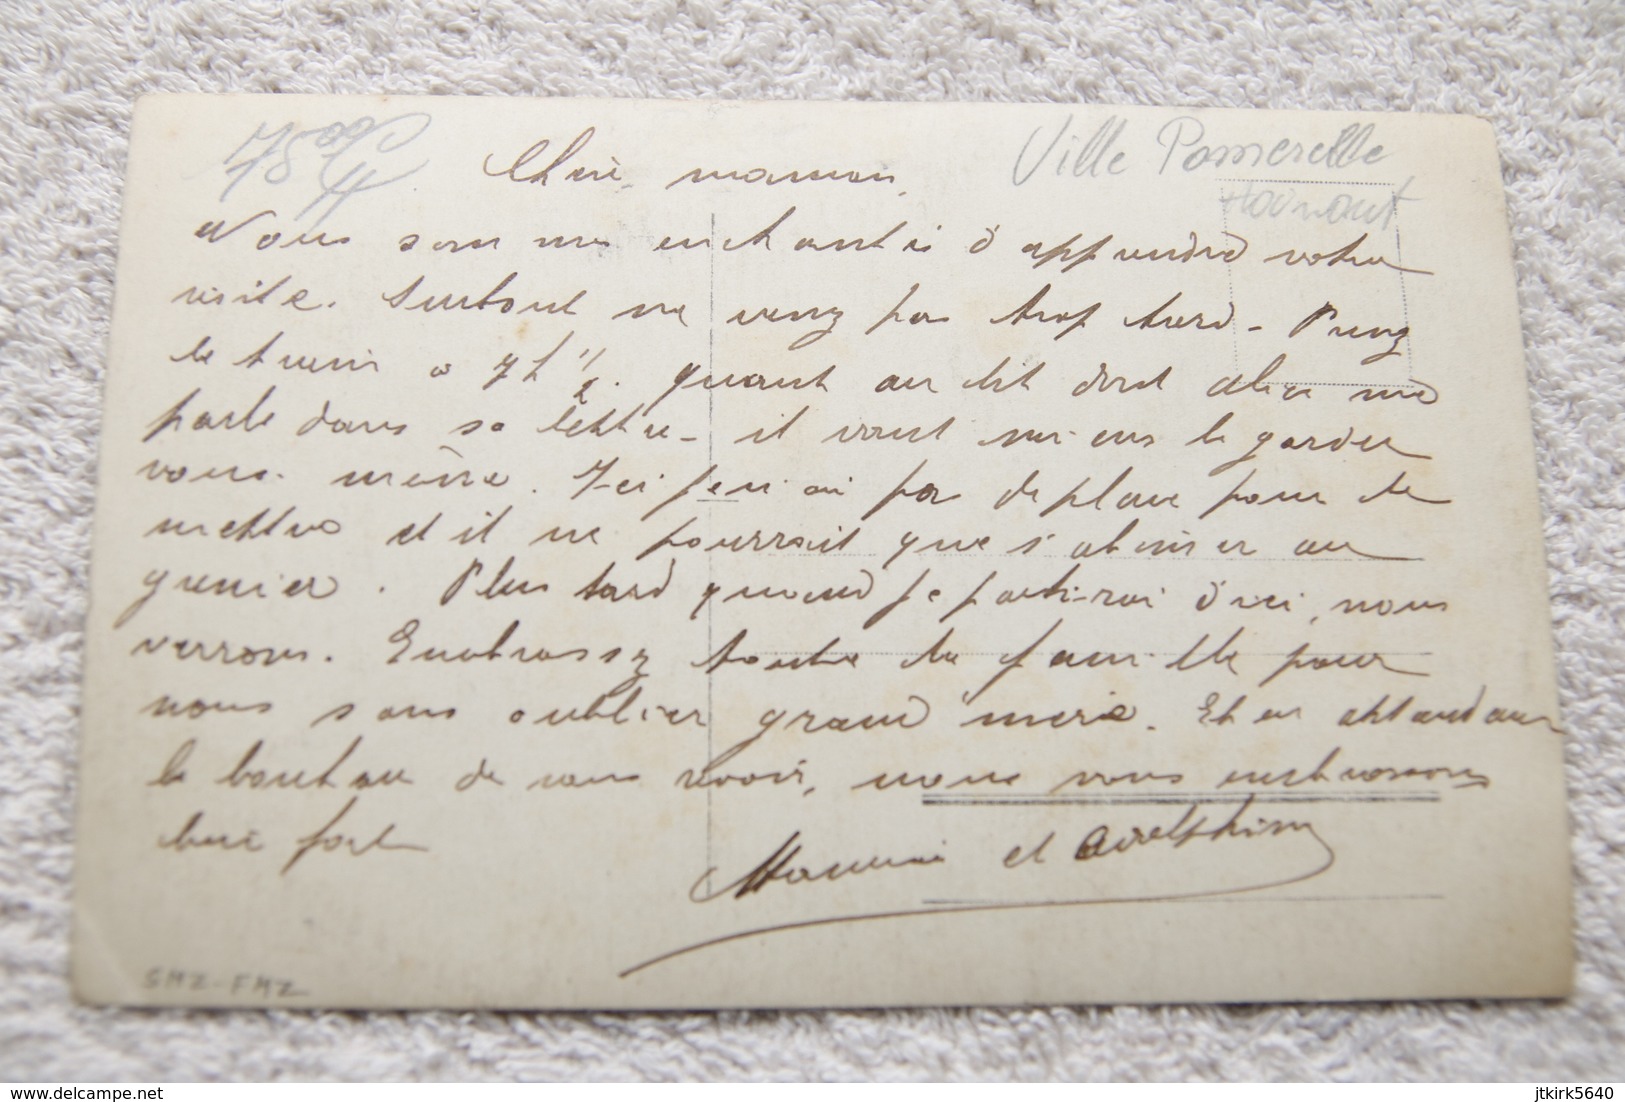 Ville Pommerelle
Hainaut
Chère maman,
Nous sommes enchantés d'apprendre votre
visite. Surtout ne venez pas trop tard - Prenez
le train à 7 h 1/2. Quant au lit dont Alice me
parle dans sa lettre - il vaut mieux le garder
vous-même. Ici je n'ai pas de place pour le
mettre et il ne pourrait que s'abimer au
grenier. Plus tard quand je partirai d'ici, nous
verrons. Embrassez toute la famille pour
nous sans oublier grand mère. Et en attendant
le bonheur de vous revoir, nous vous embrassons
bien fort
et Adelphine
SMZ-FMZ
delcampe.net
jtkirk5640